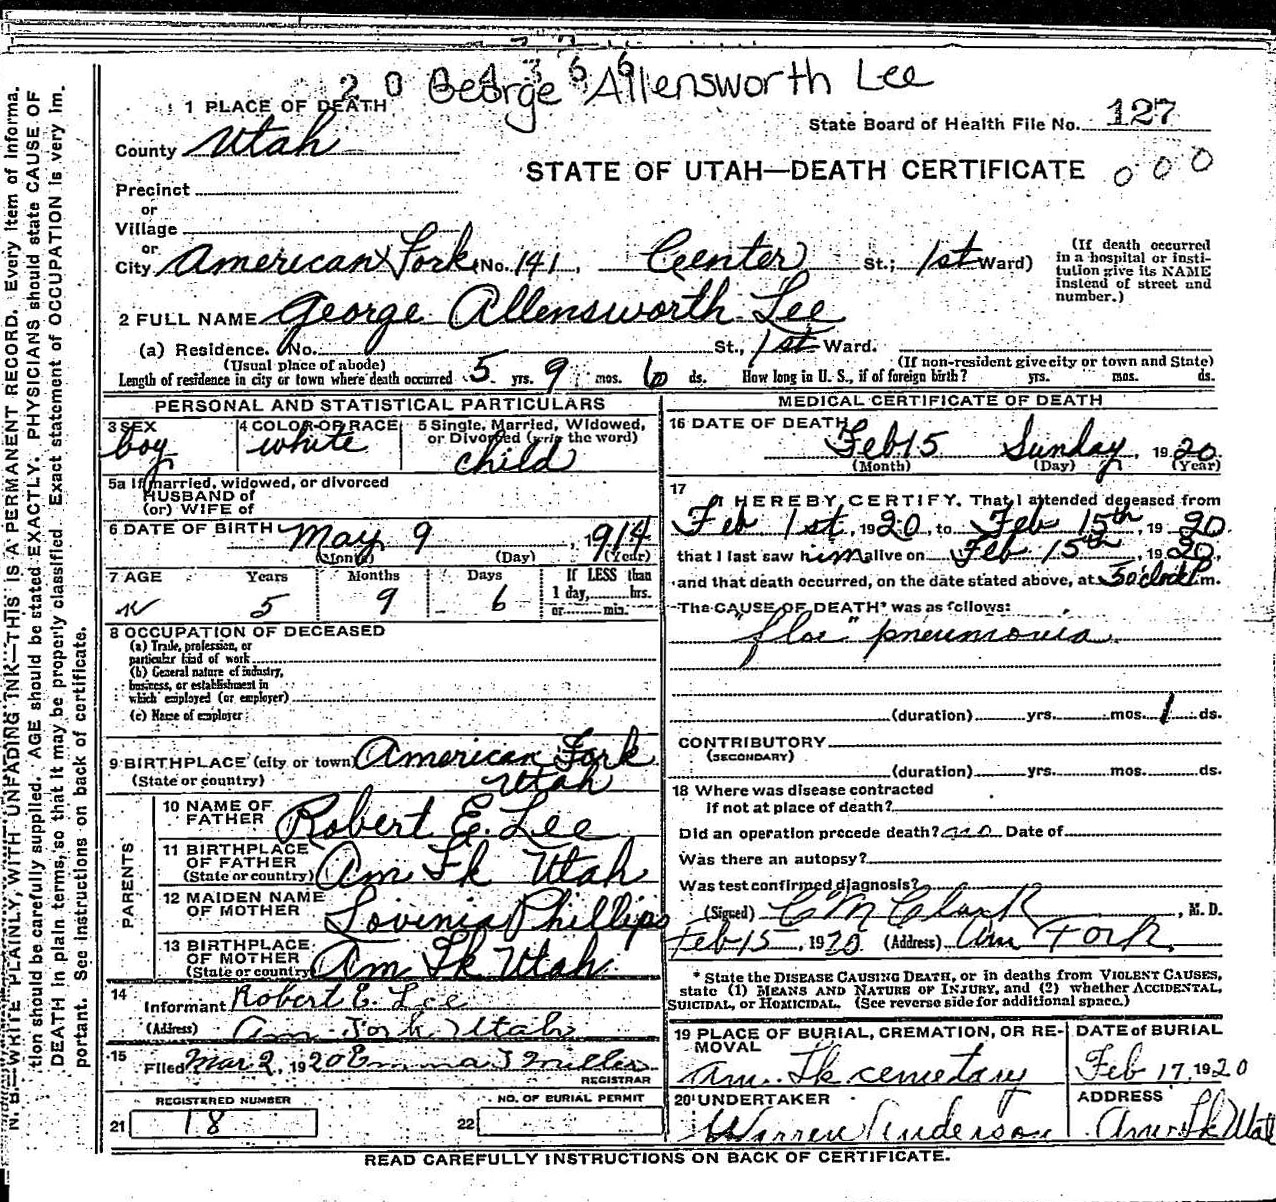 George Allensworth Lee
1 PLACE OF DEATH
State Board of Health File No. 127
County Utah
STATE OF UTAH—DEATH CERTIFICATE 000
Precinct
or
Village
or
City American Fork (No. 141, Center St.; 1st Ward)
(If death occurred in a hospital or insti-
tution give its NAME
instead of street and
number.)
2 FULL NAME George Allensworth Lee
(a) Residence. No. St., 1st Ward.
(Usual place of abode) (If non-resident give city or town and State)
Length of residence in city or town where death occurred 5 yrs. 9 mos. 6 ds. How long in U. S., if of foreign birth? yrs. mos. ds.
PERSONAL AND STATISTICAL PARTICULARS
3 SEX boy
4 COLOR OR RACE white
5 Single, Married, Widowed,
or Divorced (write the word)
child
5a If married, widowed, or divorced
HUSBAND of
(or) WIFE of
6 DATE OF BIRTH May 9, 1914
(Month) (Day) (Year)
7 AGE Years Months Days If LESS than
1 day, hrs.
or min.
5 9 6
8 OCCUPATION OF DECEASED
(a) Trade, profession, or
particular kind of work
(b) General nature of industry,
business, or establishment in
which employed (or employer)
(c) Name of employer
9 BIRTHPLACE (city or town) American Fork
(State or country) Utah
PARENTS
10 NAME OF
FATHER Robert E. Lee
11 BIRTHPLACE
OF FATHER
(State or country) Am Fk Utah
12 MAIDEN NAME
OF MOTHER Lovenia Phillips
13 BIRTHPLACE
OF MOTHER
(State or country) Am Fk Utah
14 Informant Robert E. Lee
(Address) Am Fork Utah
15 Filed Mar 2, 1920 Emma J Miller
REGISTRAR
REGISTERED NUMBER
21 18
NO. OF BURIAL PERMIT
22
MEDICAL CERTIFICATE OF DEATH
16 DATE OF DEATH
Feb 15 Sunday, 1920
(Month) (Day) (Year)
17 I HEREBY CERTIFY, That I attended deceased from
Feb 1st, 1920, to Feb 15th, 1920
that I last saw him alive on Feb 15th, 1920,
and that death occurred, on the date stated above, at 5 o'clock P.m.
The CAUSE OF DEATH* was as follows:
"floe" pneumonia
(duration) yrs. mos. 1 ds.
CONTRIBUTORY
(SECONDARY)
(duration) yrs. mos. ds.
18 Where was disease contracted
if not at place of death?
Did an operation precede death? no Date of
Was there an autopsy?
Was test confirmed diagnosis?
(Signed) C M Clark, M. D.
Feb 15, 1920 (Address) Am Fork
* State the DISEASE CAUSING DEATH, or in deaths from VIOLENT CAUSES,
state (1) MEANS AND NATURE OF INJURY, and (2) whether ACCIDENTAL,
SUICIDAL, or HOMICIDAL. (See reverse side for additional space.)
19 PLACE OF BURIAL, CREMATION, OR RE-
MOVAL
Am. Fk cemetary
DATE of BURIAL
Feb 17, 1920
20 UNDERTAKER
Warren Anderson
ADDRESS
Am. Fk Utah
READ CAREFULLY INSTRUCTIONS ON BACK OF CERTIFICATE.
N. B.—WRITE PLAINLY, WITH UNFADING INK—THIS IS A PERMANENT RECORD. Every item of informa-
tion should be carefully supplied. AGE should be stated EXACTLY. PHYSICIANS should state CAUSE OF
DEATH in plain terms, so that it may be properly classified. Exact statement of OCCUPATION is very im-
portant. See instructions on back of certificate.